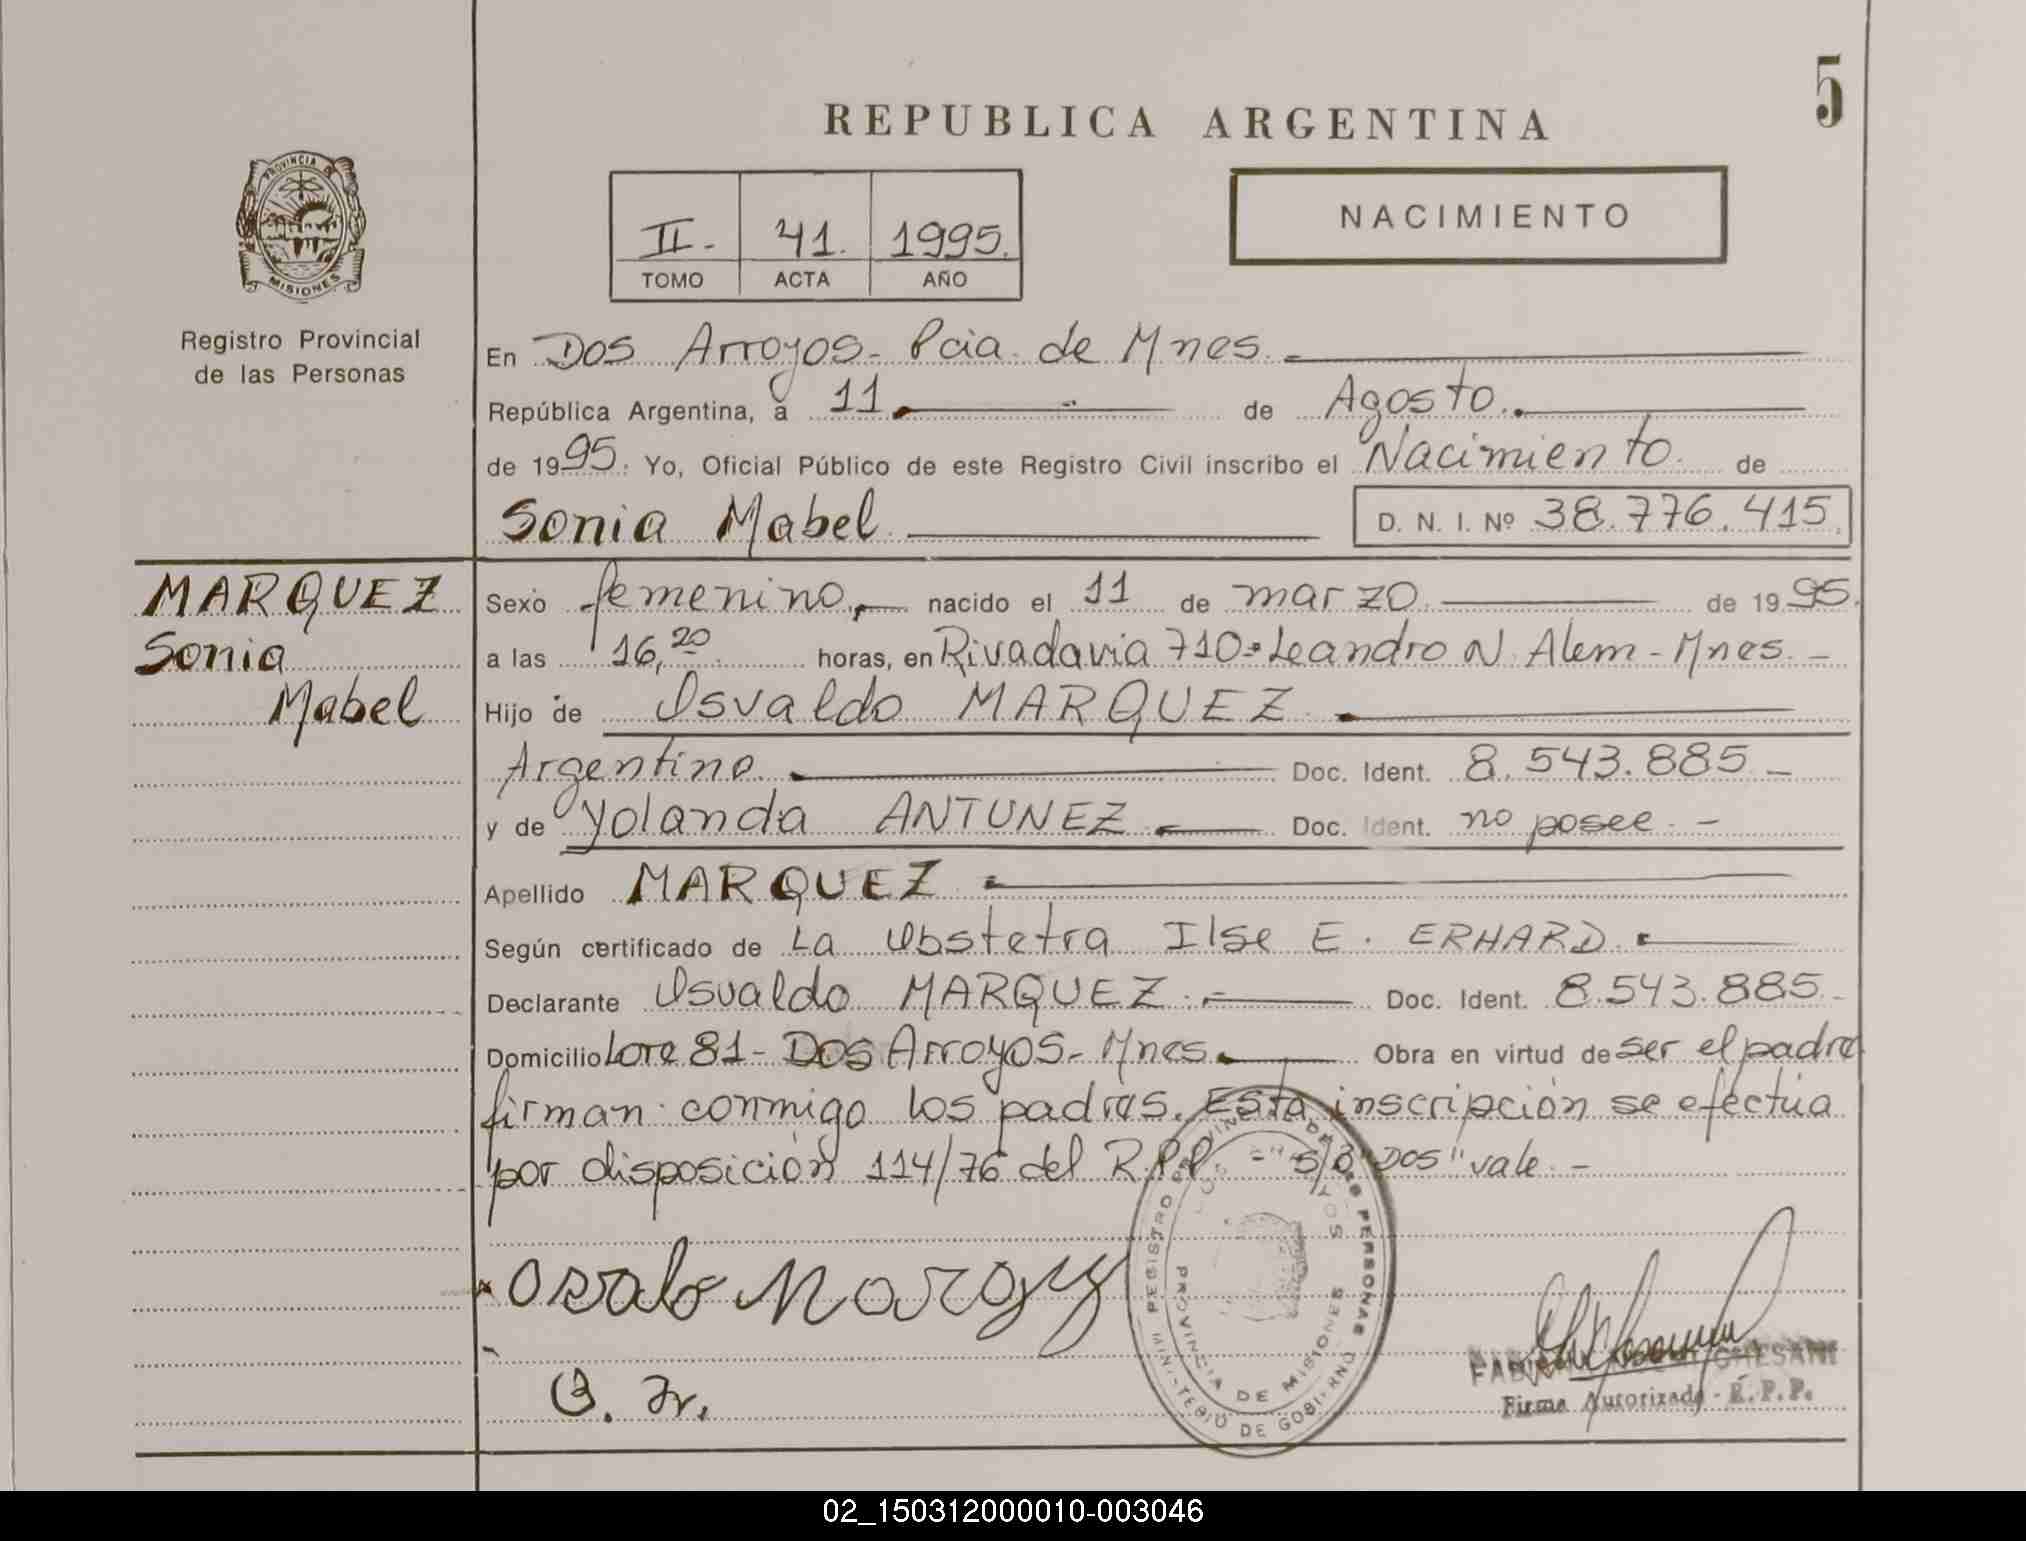 5
REPUBLICA ARGENTINA
PROVINCIA DE
MISIONES
Registro Provincial
de las Personas
NACIMIENTO
II.- 41. 1995.
TOMO ACTA AÑO
En Dos Arroyos- Pcia. de Mnes.
República Argentina, a 11 de Agosto.
de 1995. Yo, Oficial Público de este Registro Civil inscribo el Nacimiento de
Sonia Mabel D. N. I. Nº 38.776.415
MARQUEZ
Sonia
Mabel
Sexo femenino, nacido el 11 de marzo de 1995.
a las 16,20 horas, en Rivadavia 710-Leandro N. Alem-Mnes.-
Hijo de Osvaldo MARQUEZ
Argentino. Doc. Ident. 8.543.885-
y de Yolanda ANTUNEZ Doc. Ident. no posee.-
Apellido MARQUEZ
Según certificado de La Obstetra Ilse E. ERHARD.
Declarante Osvaldo MARQUEZ.- Doc. Ident. 8.543.885-
Domicilio Lote 81- Dos Arroyos- Mnes. Obra en virtud de ser el padre
firman conmigo los padres. Esta inscripción se efectúa
por disposición 114/76 del R.P.P - S/B "DOS" vale.-
REGISTRO PROVINCIAL DE LAS PERSONAS
MINISTERIO DE GOBIERNO
DOS ARROYOS
PROVINCIA DE MISIONES
Firma Autorizada - R.P.P.
02_150312000010-003046